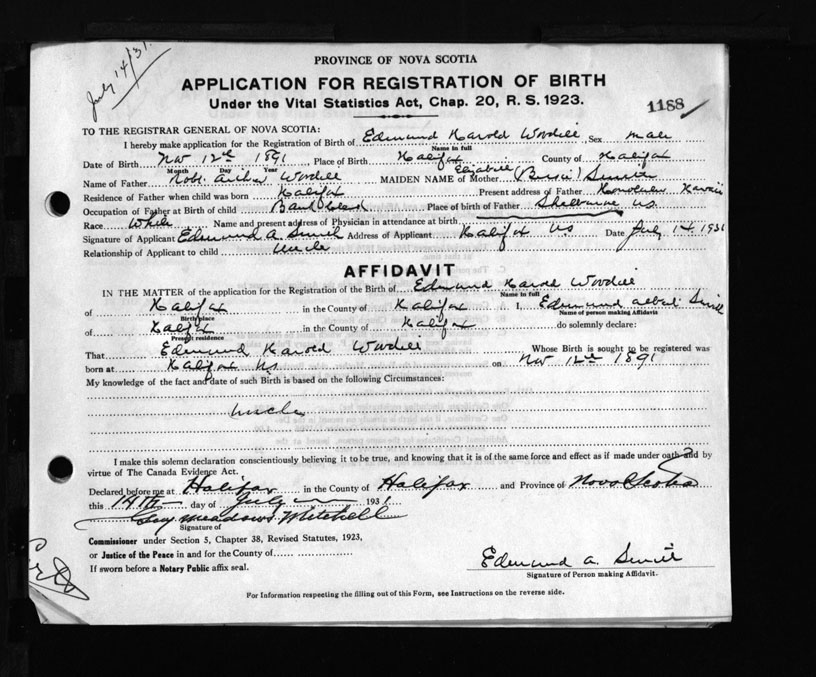 July 14/31.
PROVINCE OF NOVA SCOTIA
APPLICATION FOR REGISTRATION OF BIRTH
Under the Vital Statistics Act, Chap. 20, R. S. 1923.
1188
TO THE REGISTRAR GENERAL OF NOVA SCOTIA:
I hereby make application for the Registration of Birth of Edmund Harold Sex male
Name in full
Date of Birth Nov 12th 1891 Place of Birth Halifax County of Halifax
Month Day Year
Name of Father MAIDEN NAME of Mother Elizabeth
Residence of Father when child was born Halifax Present address of Father Honolulu Hawaii
Occupation of Father at Birth of child Place of birth of Father Shelburne NS.
Race White Name and present address of Physician in attendance at birth
Signature of Applicant Edmund A. Address of Applicant Halifax NS Date July 14 1931
Relationship of Applicant to child uncle
AFFIDAVIT
IN THE MATTER of the application for the Registration of the Birth of Edmund Harold
Name in full
of Halifax in the County of Halifax I, Edmund Albert
Birth place Name of person making Affidavit
of Halifax in the County of Halifax do solemnly declare:
Present residence
That Edmund Harold Whose Birth is sought to be registered was
born at Halifax NS on Nov 12th 1891
My knowledge of the fact and date of such Birth is based on the following Circumstances:
uncle
I make this solemn declaration conscientiously believing it to be true, and knowing that it is of the same force and effect as if made under oath and by
virtue of The Canada Evidence Act.
Declared before me at Halifax in the County of Halifax and Province of Nova Scotia
this 14th day of July 1931.
Guy Meadows Mitchell
Signature of
Commissioner under Section 5, Chapter 38, Revised Statutes, 1923,
or Justice of the Peace in and for the County of
If sworn before a Notary Public affix seal.
Edmund A.
Signature of Person making Affidavit.
For Information respecting the filling out of this Form, see Instructions on the reverse side.